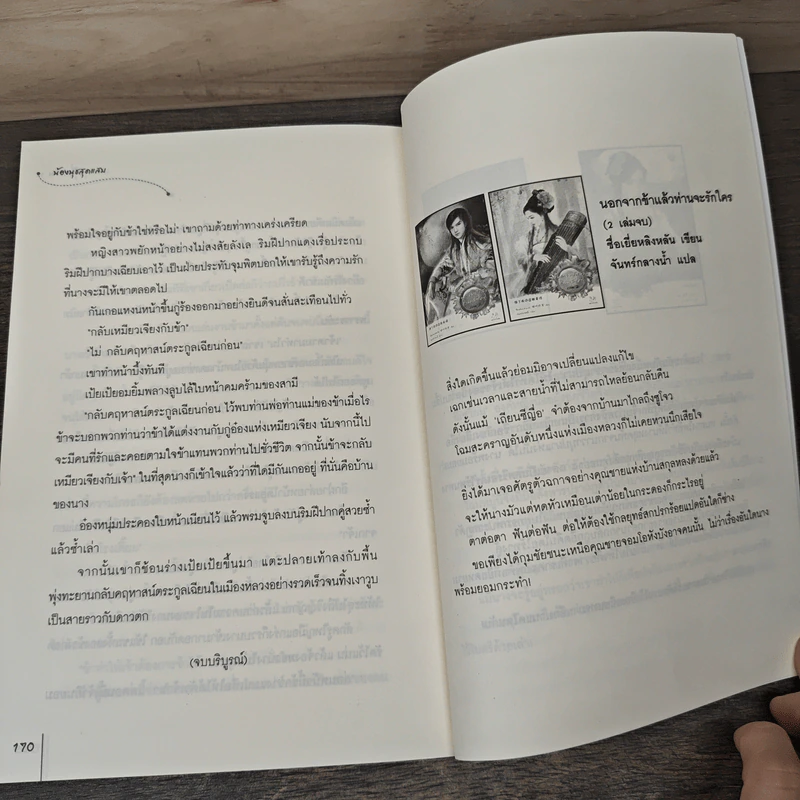 น้องนุชสุดแสบ
พร้อมใจอยู่กับข้าใช่หรือไม่" เขาถามด้วยท่าทางเคร่งเครียด
หญิงสาวพยักหน้าอย่างไม่สงสัยลังเล ริมฝีปากแดงเรื่อประกบ
ริมฝีปากบางเฉียบเอาไว้ เป็นฝ่ายประทับจุมพิตบอกให้เขารับรู้ถึงความรัก
ที่นางจะมีให้เขาตลอดไป
กันเกอแหงนหน้าขึ้นกู่ร้องออกมาอย่างยินดีจนสั่นสะเทือนไปทั่ว
"กลับเหมียวเจียงกับข้า"
"ไม่ กลับคฤหาสน์ตระกูลเฉียนก่อน"
เขาทำหน้าบึ้งทันที
เปียเปียอมยิ้มพลางลูบไล้ใบหน้าคมคร้ามของสามี
"กลับคฤหาสน์ตระกูลเฉียนก่อน ไว้พบท่านพ่อท่านแม่ของข้าเมื่อไร
ข้าจะบอกพวกท่านว่าข้าได้แต่งงานกับกู่อ๋องแห่งเหมียวเจียง นับจากนี้ไป
จะมีคนที่รักและคอยตามใจข้าแทนพวกท่านไปชั่วชีวิต จากนั้นข้าจะกลับ
เหมียวเจียงกับเจ้า" ในที่สุดนางก็เข้าใจแล้วว่าที่ใดมีกันเกออยู่ ที่นั่นคือบ้าน
ของนาง
อ๋องหนุ่มประคองใบหน้าเนียนไว้ แล้วพรมจูบลงบนริมฝีปากคู่สวยซ้ำ
แล้วซ้ำเล่า
จากนั้นเขาก็ช้อนร่างเปียเปียขึ้นมา แตะปลายเท้าลงกับพื้น
พุ่งทะยานกลับคฤหาสน์ตระกูลเฉียนในเมืองหลวงอย่างรวดเร็วจนทิ้งเงาวูบ
เป็นสายราวกับดาวตก
(จบบริบูรณ์)
170
นอกจากข้าแล้วท่านจะรักใคร
(2 เล่มจบ)
ซื่อเยี่ยหลิงหลัน เขียน
จันทร์กลางน้ำ แปล
สิ่งใดเกิดขึ้นแล้วย่อมมิอาจเปลี่ยนแปลงแก้ไข
เฉกเช่นเวลาและสายน้ำที่ไม่สามารถไหลย้อนกลับคืน
ดังนั้นแม้ 'เถียนซีญื่อ' จำต้องจากบ้านมาไกลถึงซูโจว
โฉมสะคราญอันดับหนึ่งแห่งเมืองหลวงก็ไม่เคยหวนนึกเสียใจ
ยิ่งได้มาเจอศัตรูตัวฉกาจอย่างคุณชายแห่งบ้านสกุลหลงด้วยแล้ว
จะให้นางมัวแต่หดหัวเหมือนเต่าน้อยในกระดองก็กระไรอยู่
ตาต่อตา ฟันต่อฟัน ต่อให้ต้องใช้กลยุทธ์สกปรกร้อยแปดอันใดก็ช่าง
ขอเพียงได้กุมชัยชนะเหนือคุณชายจอมโอหังบังอาจคนนั้น ไม่ว่าเรื่องอันใดนาง
พร้อมยอมกระทำ!